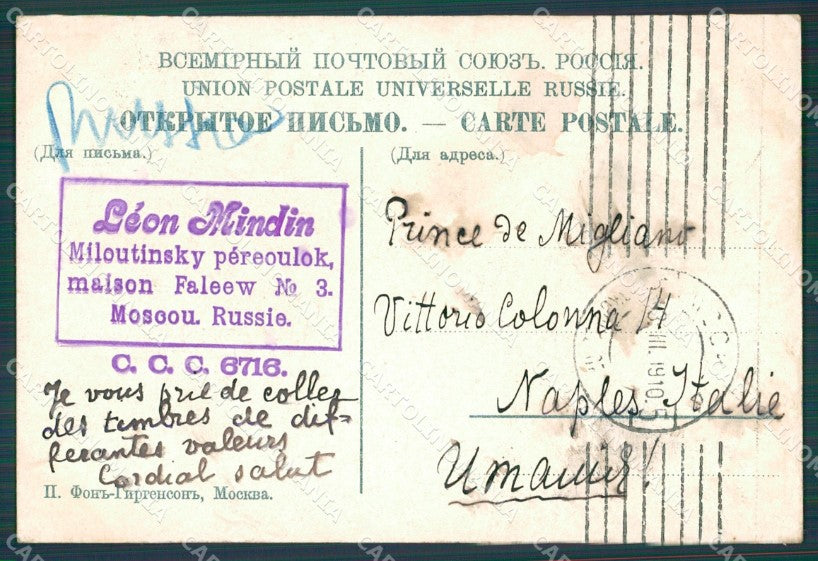 ВСЕМІРНЫЙ ПОЧТОВЫЙ СОЮЗЪ. РОССІЯ.
UNION POSTALE UNIVERSELLE RUSSIE.
ОТКРЫТОЕ ПИСЬМО. — CARTE POSTALE.
(Для письма.)
(Для адреса.)
Léon Mindin
Miloutinsky péreoulok,
maison Faleew № 3.
Moscou. Russie.
C. C. C. 6716.
Je vous prie de coller
des timbres de dif-
ferantes valeurs
Cordial salut
П. Фонъ-Гиргенсонъ, Москва.
Prince de Migliano
Vittorio Colonna 14
Naples Italie
Италия!
1910
CARTOLINOMANIA